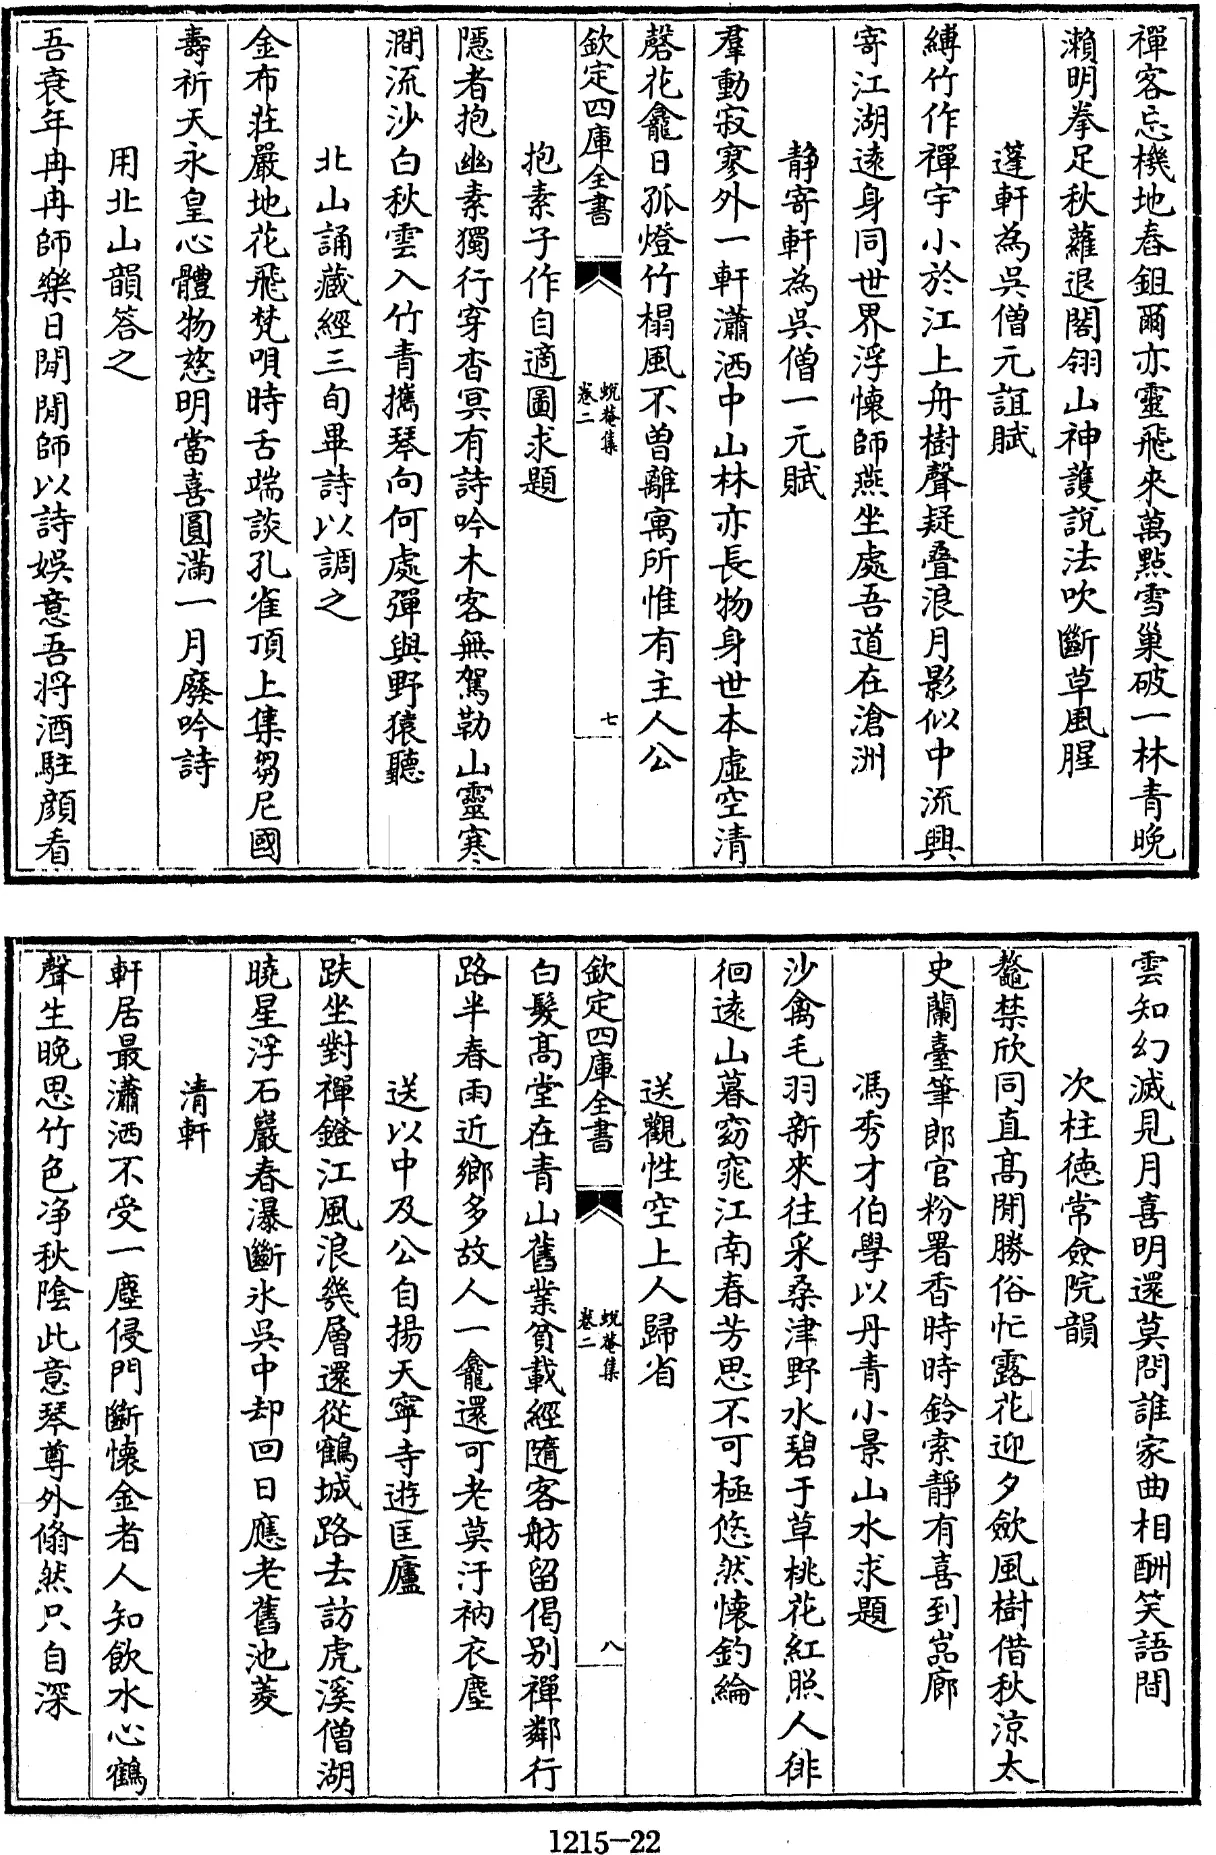 禪客忘機地舂鉏爾亦靈飛來萬點雪巢破一林青晚
瀨明拳足秋蘿退閣翎山神護說法吹斷草風腥
蓬軒為吳僧元誼賦
縛竹作禪宇小於江上舟樹聲疑疊浪月影似中流興
寄江湖遠身同世界浮懐師燕坐處吾道在滄洲
静寄軒為吳僧一元賦
羣動寂寥外一軒瀟洒中山林亦長物身世本虛空清
磬花龕日孤燈竹榻風不曽離寓所惟有主人公
欽定四庫全書
蛻菴集
卷二
七
抱素子作自適圖求題
隱者抱幽素獨行穿杳冥有詩吟木客無駕勒山靈寒
澗流沙白秋雲入竹青攜琴向何處彈與野猿聽
北山誦藏經三旬畢詩以調之
金布莊嚴地花飛梵唄時舌端談孔雀頂上集芻尼國
壽祈天永皇心體物慈明當喜圓滿一月廢吟詩
用北山韻答之
吾衰年冉冉師樂日閒閒師以詩娛意吾將酒駐顔看
雲知幻滅見月喜明還莫問誰家曲相酬笑語間
次柱德常僉院韻
鼇禁欣同直髙閒勝俗忙露花迎夕斂風樹借秋涼太
史蘭臺筆郎官粉署香時時鈴索靜有喜到嵓廊
馮秀才伯學以丹青小景山水求題
沙禽毛羽新來往采桑津野水碧于草桃花紅照人徘
徊遠山暮窈窕江南春芳思不可極悠然懐釣綸
送觀性空上人歸省
欽定四庫全書
蛻菴集
卷二
八
白髮髙堂在青山舊業貧載經隨客舫留偈别禪鄰行
路半春雨近鄉多故人一龕還可老莫汙衲衣塵
送以中及公自揚天寧寺遊匡廬
趺坐對禪鐙江風浪幾層還從鶴城路去訪虎溪僧湖
曉星浮石巖春瀑斷氷吳中却回日應老舊池菱
清軒
軒居最瀟洒不受一塵侵門斷懐金者人知飲水心鶴
聲生晩思竹色净秋陰此意琴尊外翛然只自深
1215—22